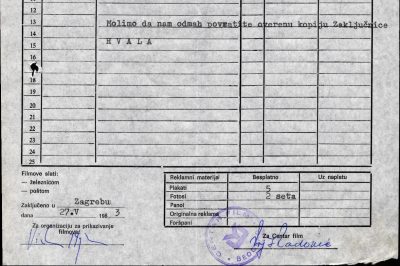 13
14 Molimo da nam odmah povratite overenu kopiju Zaključnice
15 H V A L A
16
17
18
19
20
21
22
23
24
25
Filmove slati:
— železnicom
— poštom
Zaključeno u Zagrebu
dana 27.V 1983
Za organizaciju za prikazivanje
filmova:
Reklamni materijal Besplatno Uz naplatu
Plakati 5
Fotosi 2 seta
Panoi
Originalna reklama
Foršpani
Za Centar film